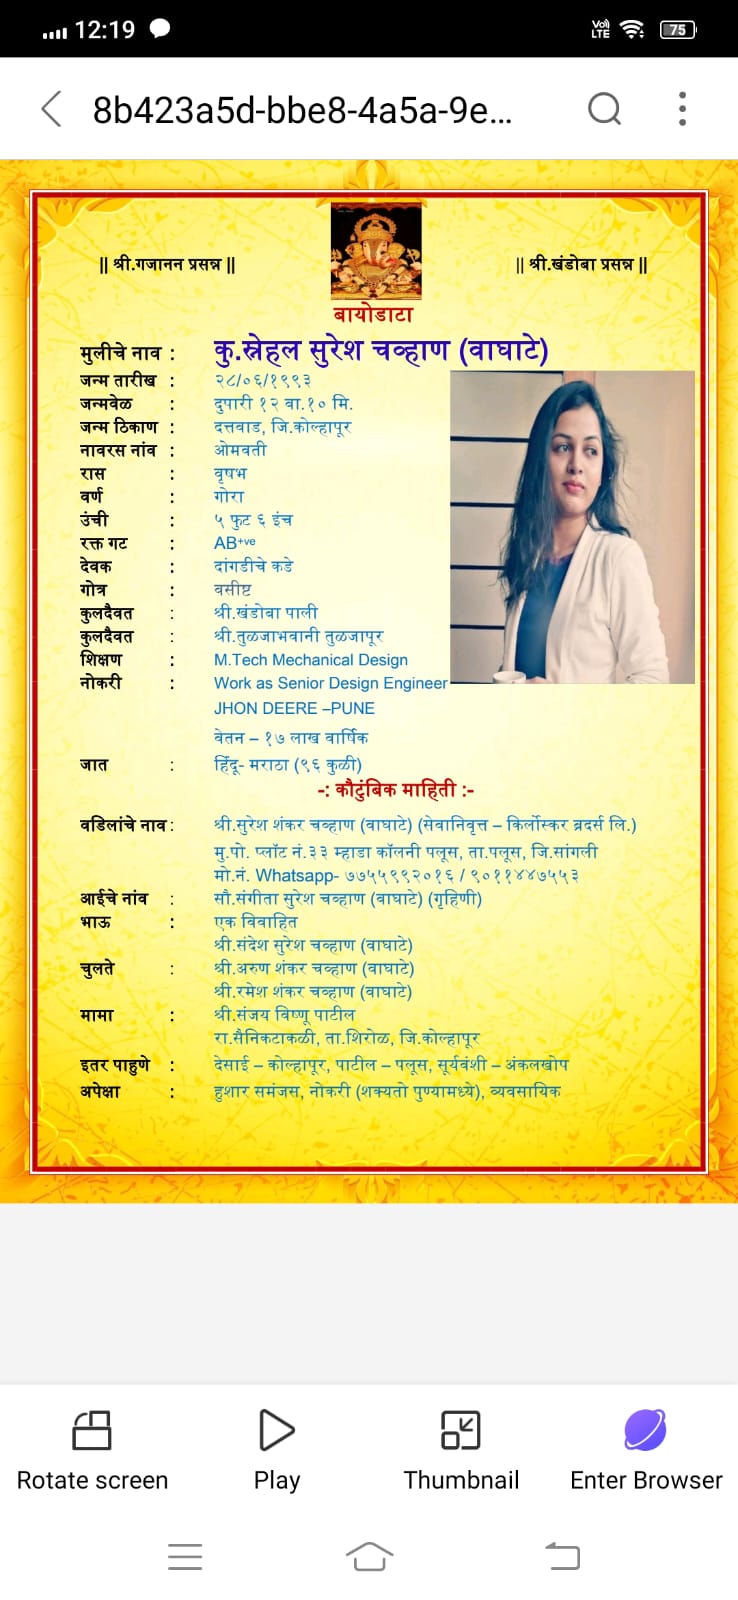 12:19
VoD LTE
75
8b423a5d-bbe8-4a5a-9e...
|| श्री.गजानन प्रसन्न || || श्री.खंडोबा प्रसन्न ||
बायोडाटा
मुलीचे नाव : कु.स्नेहल सुरेश चव्हाण (वाघाटे)
जन्म तारीख : २८/०६/१९९३
जन्मवेळ : दुपारी १२ वा.१० मि.
जन्म ठिकाण : दत्तवाड, जि.कोल्हापूर
नावरस नांव : ओमवती
रास : वृषभ
वर्ण : गोरा
उंची : ५ फुट ६ इंच
रक्त गट : AB+ve
देवक : दांगडीचे कडे
गोत्र : वसीष्ट
कुलदैवत : श्री.खंडोबा पाली
कुलदैवत : श्री.तुळजाभवानी तुळजापूर
शिक्षण : M.Tech Mechanical Design
नोकरी : Work as Senior Design Engineer
JHON DEERE –PUNE
वेतन – १७ लाख वार्षिक
जात : हिंदू- मराठा (९६ कुळी)
-: कौटुंबिक माहिती :-
वडिलांचे नाव : श्री.सुरेश शंकर चव्हाण (वाघाटे) (सेवानिवृत्त – किर्लोस्कर ब्रदर्स लि.)
मु.पो. प्लॉट नं.३३ म्हाडा कॉलनी पलूस, ता.पलूस, जि.सांगली
मो.नं. Whatsapp- ७७५५९९२०१६ / ९०११४४७५५३
आईचे नांव : सौ.संगीता सुरेश चव्हाण (वाघाटे) (गृहिणी)
भाऊ : एक विवाहित
श्री.संदेश सुरेश चव्हाण (वाघाटे)
चुलते : श्री.अरुण शंकर चव्हाण (वाघाटे)
श्री.रमेश शंकर चव्हाण (वाघाटे)
मामा : श्री.संजय विष्णू पाटील
रा.सैनिकटाकळी, ता.शिरोळ, जि.कोल्हापूर
इतर पाहुणे : देसाई – कोल्हापूर, पाटील – पलूस, सूर्यवंशी – अंकलखोप
अपेक्षा : हुशार समंजस, नोकरी (शक्यतो पुण्यामध्ये), व्यवसायिक
Rotate screen Play Thumbnail Enter Browser